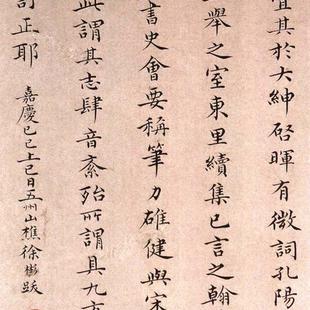 宜其於大紳啓暉有微詞孔陽
舉之室東里續集已言之翰
書史會要稱筆力雄健與宋
此謂其志肆音紊殆所謂具九方
訂正耶
嘉慶己巳上巳日五州山樵徐彬跋